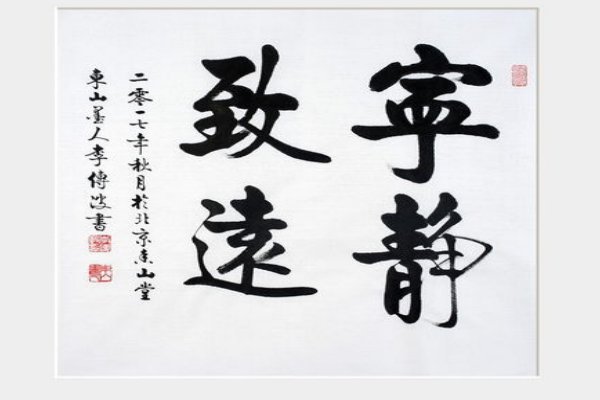 寧靜
致遠
二零一七年秋月於北京東山堂
東山墨人李傳波書